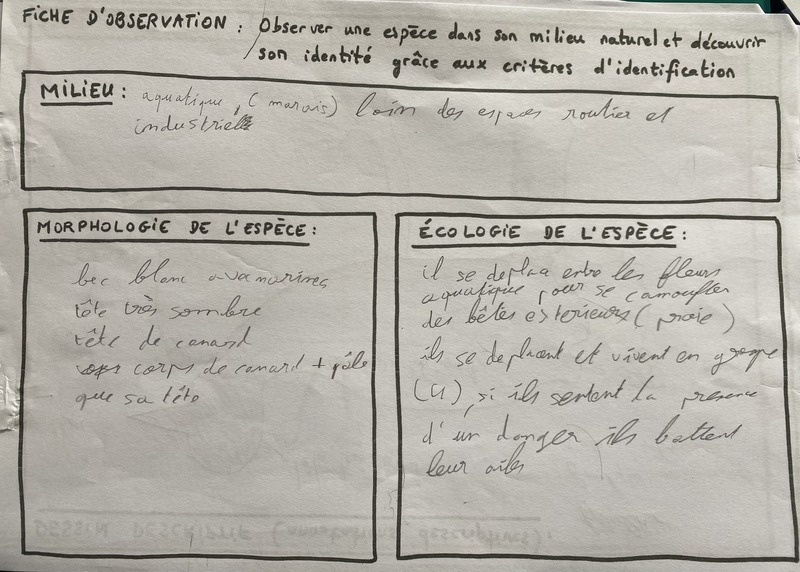 FICHE D'OBSERVATION : Observer une espèce dans son milieu naturel et découvrir
son identité grâce aux critères d'identification
MILIEU : aquatique, (marais) loin des espaces routier et
industriel
MORPHOLOGIE DE L'ESPÈCE :
bec blanc avec narines
tête très sombre
tête de canard
corps de canard + pâle
que sa tête
ÉCOLOGIE DE L'ESPÈCE :
il se deplaa entre les fleurs
aquatique pour se camoufler
des bêtes exterieurs (proie)
ils se deplacent et vivent en groupe
(4), si ils sentent la presence
d'un danger ils battent
leur ailes
DESSIN DESCRIPTIF (annotations descriptives) :